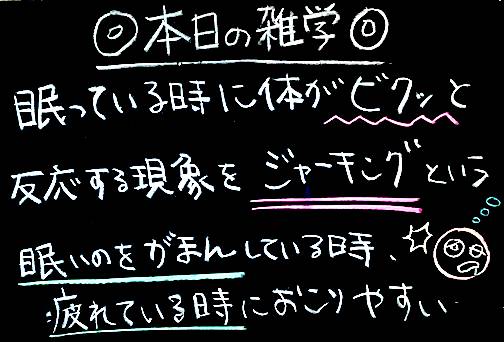 ◎本日の雑学◎
眠っている時に体がビクッと
反応する現象をジャーキングという
眠いのをがまんしている時、
疲れている時におこりやすい